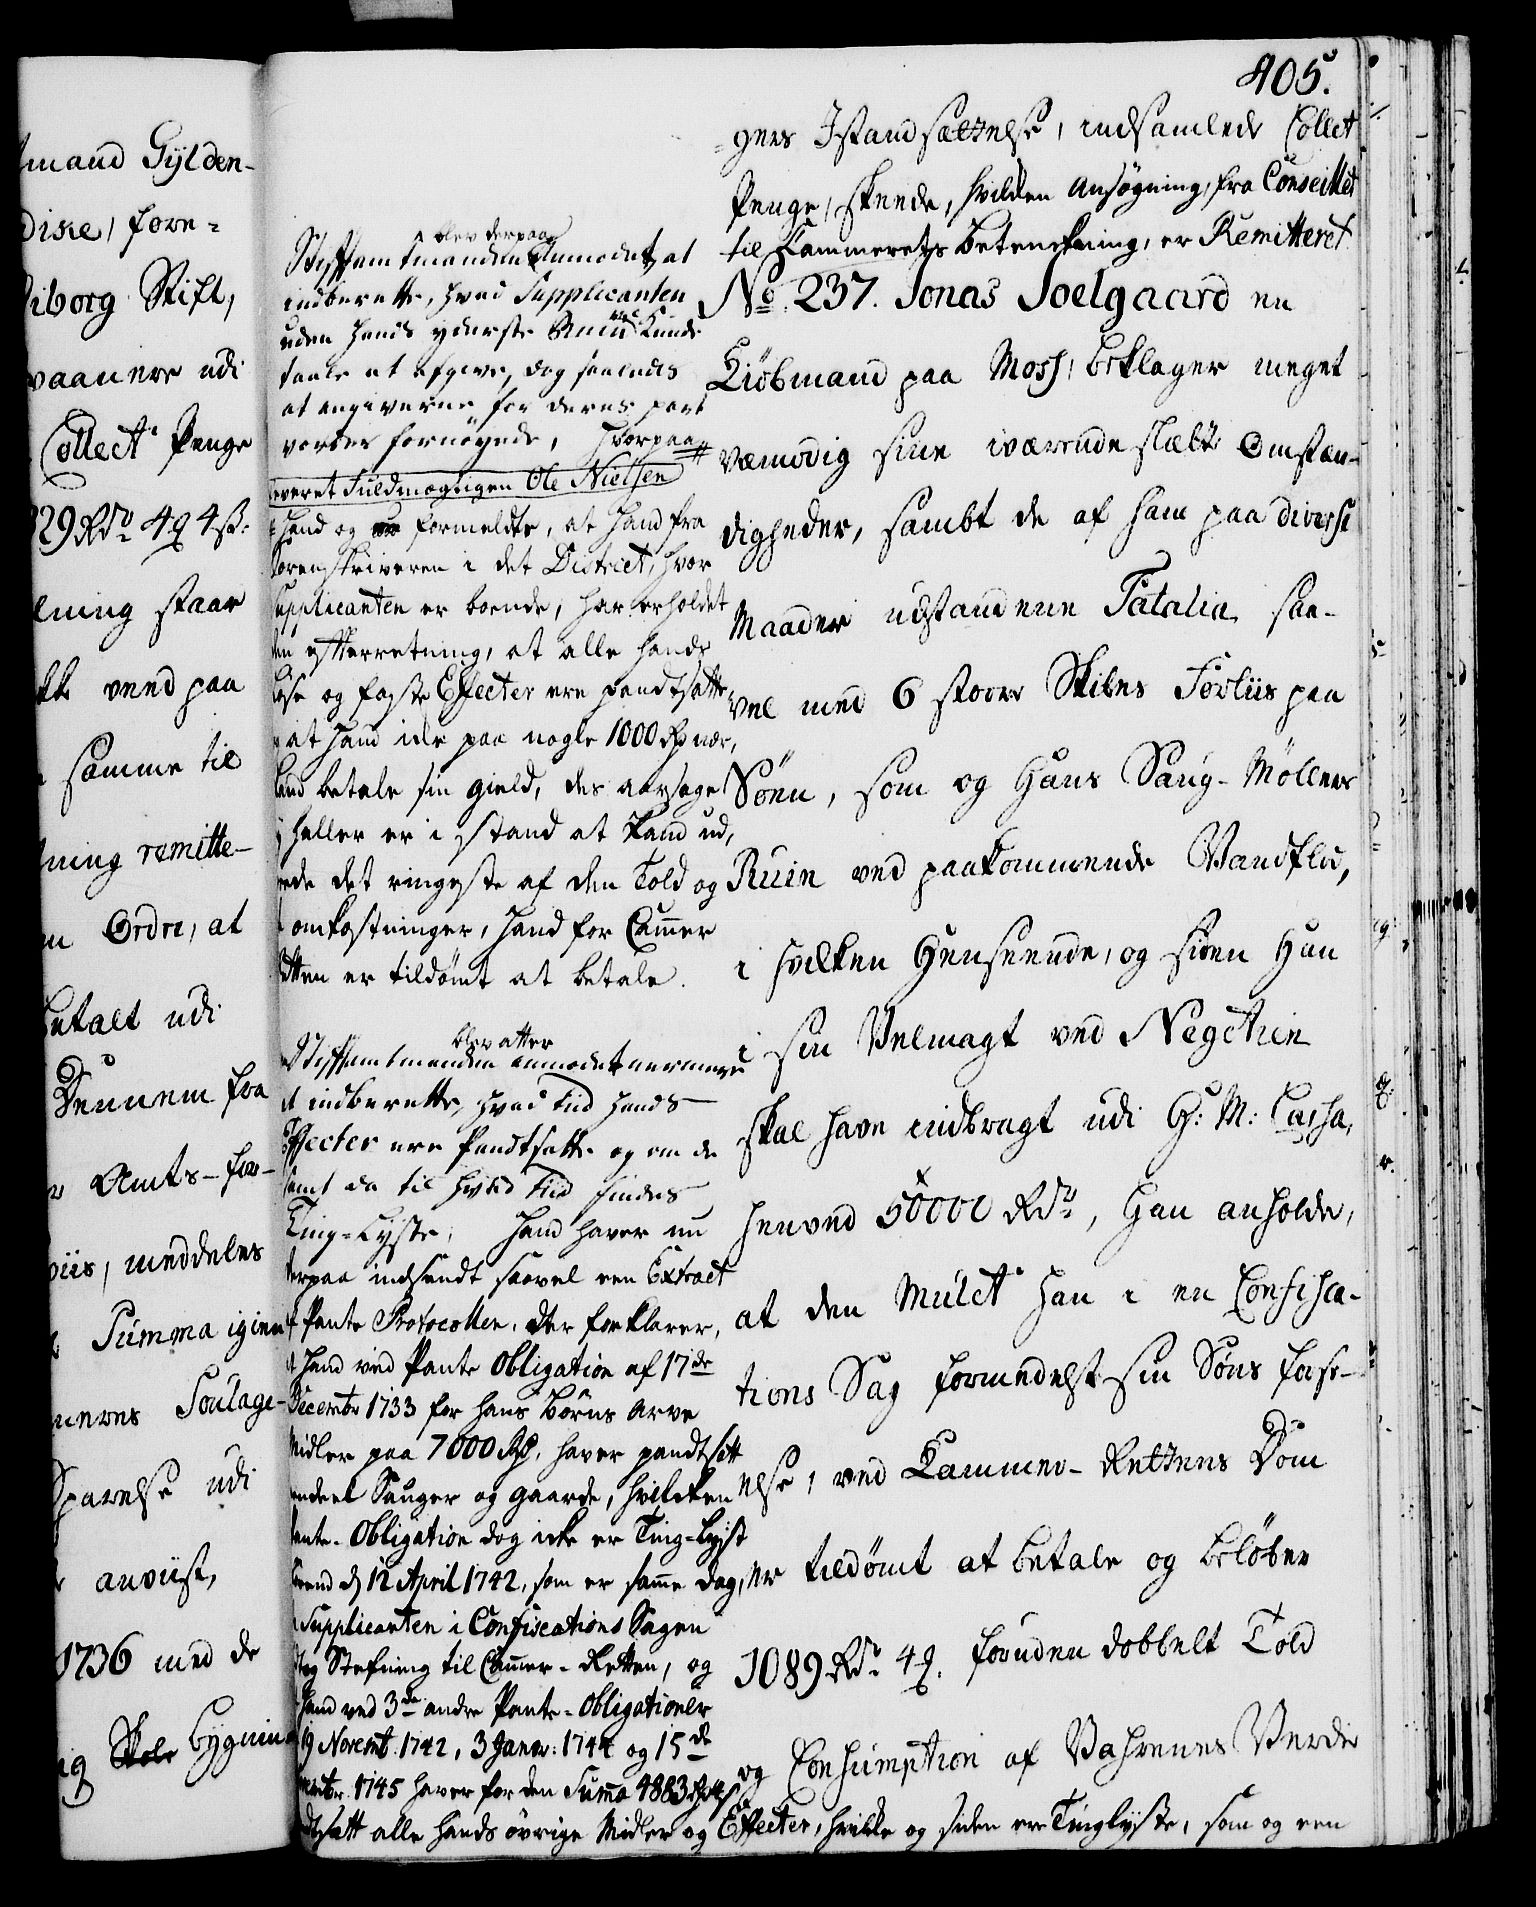 405.
gers Istandsættelse, indsamlede Collet
Penge, skeede, hvilken Ansøgning, fra Conseillet
til Cammerets betenckning, er Remitteret
No. 237. Jonas Joelgaard en
Kiöbmand paa Moss, beklager meget
væmodig sine iværende slætte Omstæn-
digheder, sambt de af ham paa diverse
Maader udstandene Fatalia saa-
vel med 6 stoore Skibes Forliis paa
Söen, som og Hans Saug-Möllers
Ruin ved paakommende Vandflod,
i hvilken Henseende, og siden Han
i sin Velmagt ved Negotien
skal have indbragt udi H: M: Cassa,
henved 50000 Rdr, Han anholder,
at den Mulct han i en Confisca-
tions Sag formedelst sin Söns forse-
else, ved Kammer-Rettens Dom
er tildömt at betale og belöber
1089 Rdr 4 ꝑ. foruden dobbelt Told
og Consumption af Vahrenes Verdie
Stiftamtmanden blev derpaa anmodet at
indberette, hvad Supplicanten
uden hands yderste Ruin kunde
taale at afgive, dog saaledes
at angiverne for deres part
vorder fornøyede, hvorpaa
leveret Fuldmægtigen Ole Nielsen
Hand og formeldte, at hand fra
Sorenskriveren i det District, hvor
Supplicanten er boende, har erholdet
den efterretning, at alle hands
løse og faste Effecter ere pandtsatte,
at hand icke paa nogle 1000 Rd nær,
kand betale sin gield, des aarsage
heller er i stand at kand ud,
rede det ringeste af den Told og
omkostninger, hand for Cammer
Retten er tildömt at betale.
Stiftamtmanden blev atter anmodet nermere
at indberette, hvad Tiid hands
Effecter ere Pandtsatte og om de
samt da til hvad Tiid findes
Ting-Lyste; Hand haver nu
derpaa indsendt saavel een Extract
af Pante Protocollen, der forklarer,
at hand ved Pante Obligation af 17de
Decembr 1733 for hans Börns Arve
Midler paa 7000 Rd, haver pandtsatt
endeel Sauger og gaarde, hvilcken
Pante-Obligation dog icke er Ting-Lyst
förend d 12 April 1742, som er samme dag,
Supplicanten i Confiscations Sagen
tog Stefning til Cammer-Retten, og
hand ved 3de andre Pante-Obligationer
19 Novemb: 1742, 3 Janvr: 1744 og 15de
1745 haver for den Summa 4883 Rd
pandtsatt alle hands övrige Midler og Effecter, hvilke og siden ere Tinglyste, som og een
mand Gÿlden-
fore-
Viborg Stift,
vaanere udi
Collect Penge
329 Rdr 4 ꝑ 4 sk:
lning staar
veed paa
samme til
ning remitte-
Ordre, at
betalt udi
Dennem fra
Amts-for-
viis, meddeles
Summa igien
Soulage-
Sparelse udi
anviist,
1736 med de
Skole bygning